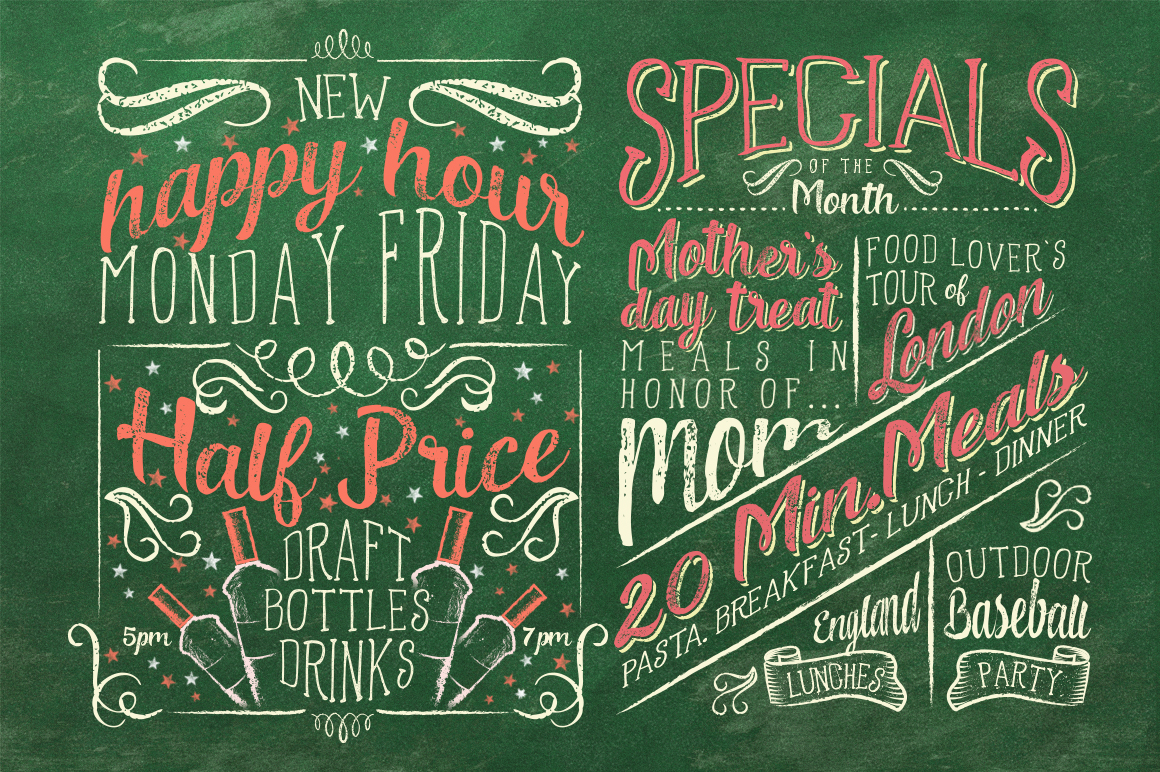 NEW
happy hour
MONDAY FRIDAY
Half Price
DRAFT
BOTTLES
DRINKS
5pm
7pm
SPECIALS
OF THE
Month
Mother's
day treat
MEALS IN
HONOR OF...
mom
FOOD LOVER'S
TOUR of
London
20 Min. Meals
PASTA. BREAKFAST- LUNCH - DINNER
England
LUNCHES
OUTDOOR
Baseball
PARTY